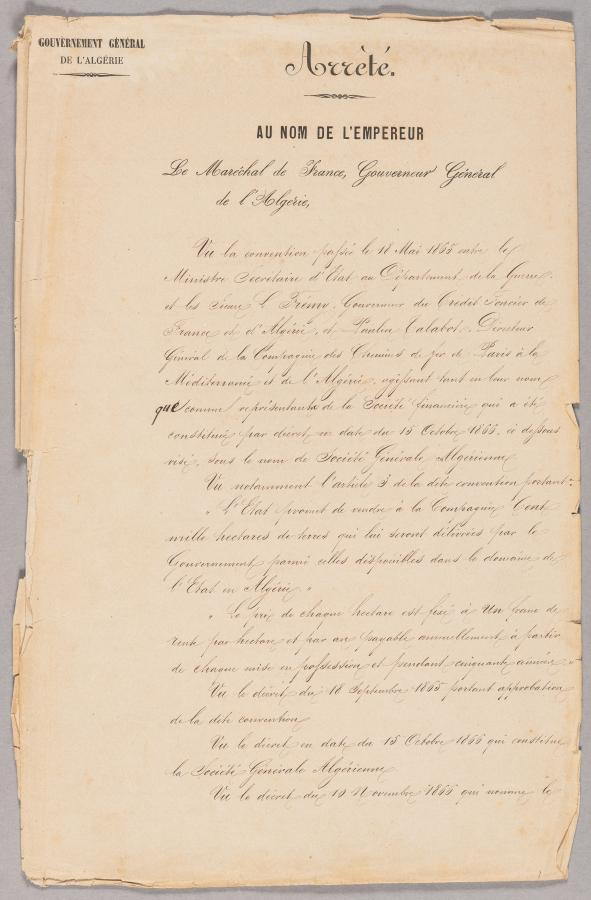 GOUVERNEMENT GÉNÉRAL
DE L'ALGÉRIE
Arrêté.
AU NOM DE L'EMPEREUR
Le Maréchal de France, Gouverneur Général
de l'Algérie,
Vu la convention passée le 18 Mai 1865 entre le
Ministre Secrétaire d'Etat au Département de la Guerre
et les Sieurs L. Frémy, Gouverneur du Crédit Foncier de
France et d'Algérie, et Paulin Talabot, Directeur
Général de la Compagnie des Chemins de fer de Paris à la
Méditerranée et de l'Algérie, agissant tant en leur nom
que comme représentants de la Société financière qui a été
constituée par décret en date du 15 Octobre 1866, ci dessous
visé, sous le nom de Société Générale Algérienne
Vu notamment l'article 3 de la dite convention portant :
" L'Etat promet de vendre à la Compagnie Cent
mille hectares de terres qui lui seront délivrées par le
Gouvernement parmi celles disponibles dans le domaine de
l'Etat en Algérie "
" Le prix de chaque hectare est fixé à Un franc de
rente par hectare et par an payable annuellement à partir
de chaque mise en possession et pendant cinquante années "
Vu le décret du 18 Septembre 1865 portant approbation
de la dite convention
Vu le décret en date du 15 Octobre 1866 qui constitue
la Société Générale Algérienne
Vu le décret du 19 Novembre 1866 qui nomme le